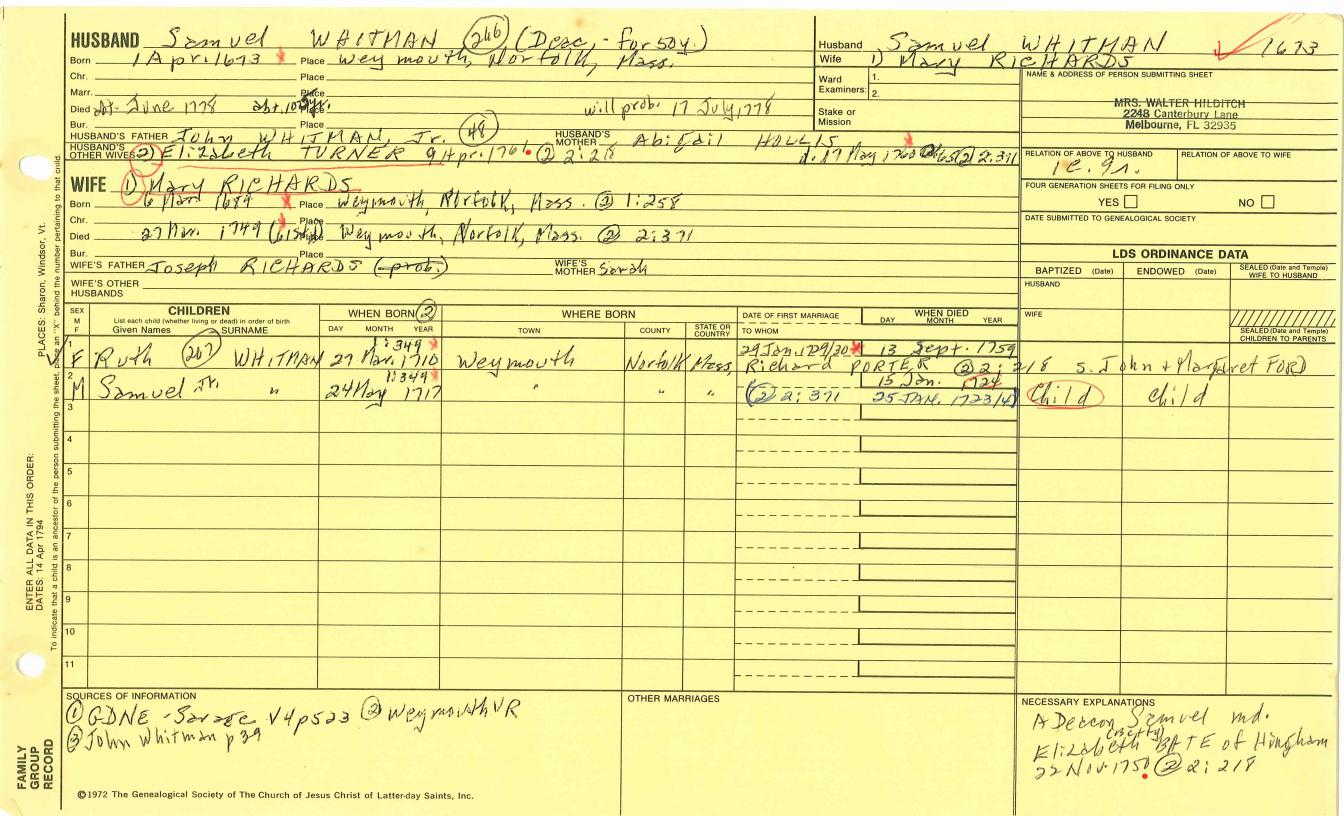 HUSBAND Samuel WHITMAN 246 (Deac. - for 50y.)
Born 1 Apr. 1673 Place Weymouth, Norfolk, Mass.
Chr. Place
Marr. Place
Died June 1778 will prob. 17 July, 1778
Bur. Place
HUSBAND'S FATHER John WHITMAN, Jr. 48 HUSBAND'S MOTHER Abigail HOLLIS
HUSBAND'S OTHER WIVES 2) Elizabeth TURNER 9 Apr. 1761 ② 2:218 d. 17 May ② 2:371
WIFE 1) Mary RICHARDS
Born 6 Mar 1684 Place Weymouth, Norfolk, Mass. ② 1:258
Chr. Place
Died 27 Mar. 1749 Place Weymouth, Norfolk, Mass. ② 2:371
Bur. Place
WIFE'S FATHER Joseph RICHARDS (prob.) WIFE'S MOTHER Sarah
WIFE'S OTHER HUSBANDS
Husband Samuel WHITMAN 1673
Wife 1) Mary RICHARDS
Ward Examiners: 1.
2.
Stake or Mission
NAME & ADDRESS OF PERSON SUBMITTING SHEET
MRS. WALTER HILDITCH
2248 Canterbury Lane
Melbourne, FL 32935
RELATION OF ABOVE TO HUSBAND RELATION OF ABOVE TO WIFE
FOUR GENERATION SHEETS FOR FILING ONLY
YES NO
DATE SUBMITTED TO GENEALOGICAL SOCIETY
LDS ORDINANCE DATA
BAPTIZED (Date) ENDOWED (Date) SEALED (Date and Temple) WIFE TO HUSBAND
HUSBAND
WIFE
SEALED (Date and Temple) CHILDREN TO PARENTS
SEX M F CHILDREN WHEN BORN ② WHERE BORN DATE OF FIRST MARRIAGE WHEN DIED
List each child (whether living or dead) in order of birth
Given Names SURNAME DAY MONTH YEAR TOWN COUNTY STATE OR COUNTRY TO WHOM DAY MONTH YEAR
1 1:349 29 Jan. 1729/30 13 Sept. 1759
F Ruth 207 WHITMAN 27 Mar. 1710 Weymouth Norfolk Mass Richard PORTER ② 2:218 s. John + Margaret FORD
2 1:349 15 Jan. 1724
M Samuel Jr. " 24 May 1717 " " " ② 2:371 25 JAN. 1723/4 Child Child
3
4
5
6
7
8
9
10
11
SOURCES OF INFORMATION
① GDNE - Savage V4p523 ② Weymouth VR
③ John Whitman p 39
OTHER MARRIAGES
NECESSARY EXPLANATIONS
A Deacon Samuel md.
(Betty)
Elizabeth BATE of Hingham
22 Nov. 1750 ② 2:218
©1972 The Genealogical Society of The Church of Jesus Christ of Latter-day Saints, Inc.
FAMILY GROUP RECORD
ENTER ALL DATA IN THIS ORDER:
DATES: 14 Apr 1794
PLACES: Sharon, Windsor, Vt.
To indicate that a child is an ancestor of the person submitting the sheet, place an "X" behind the number pertaining to that child.